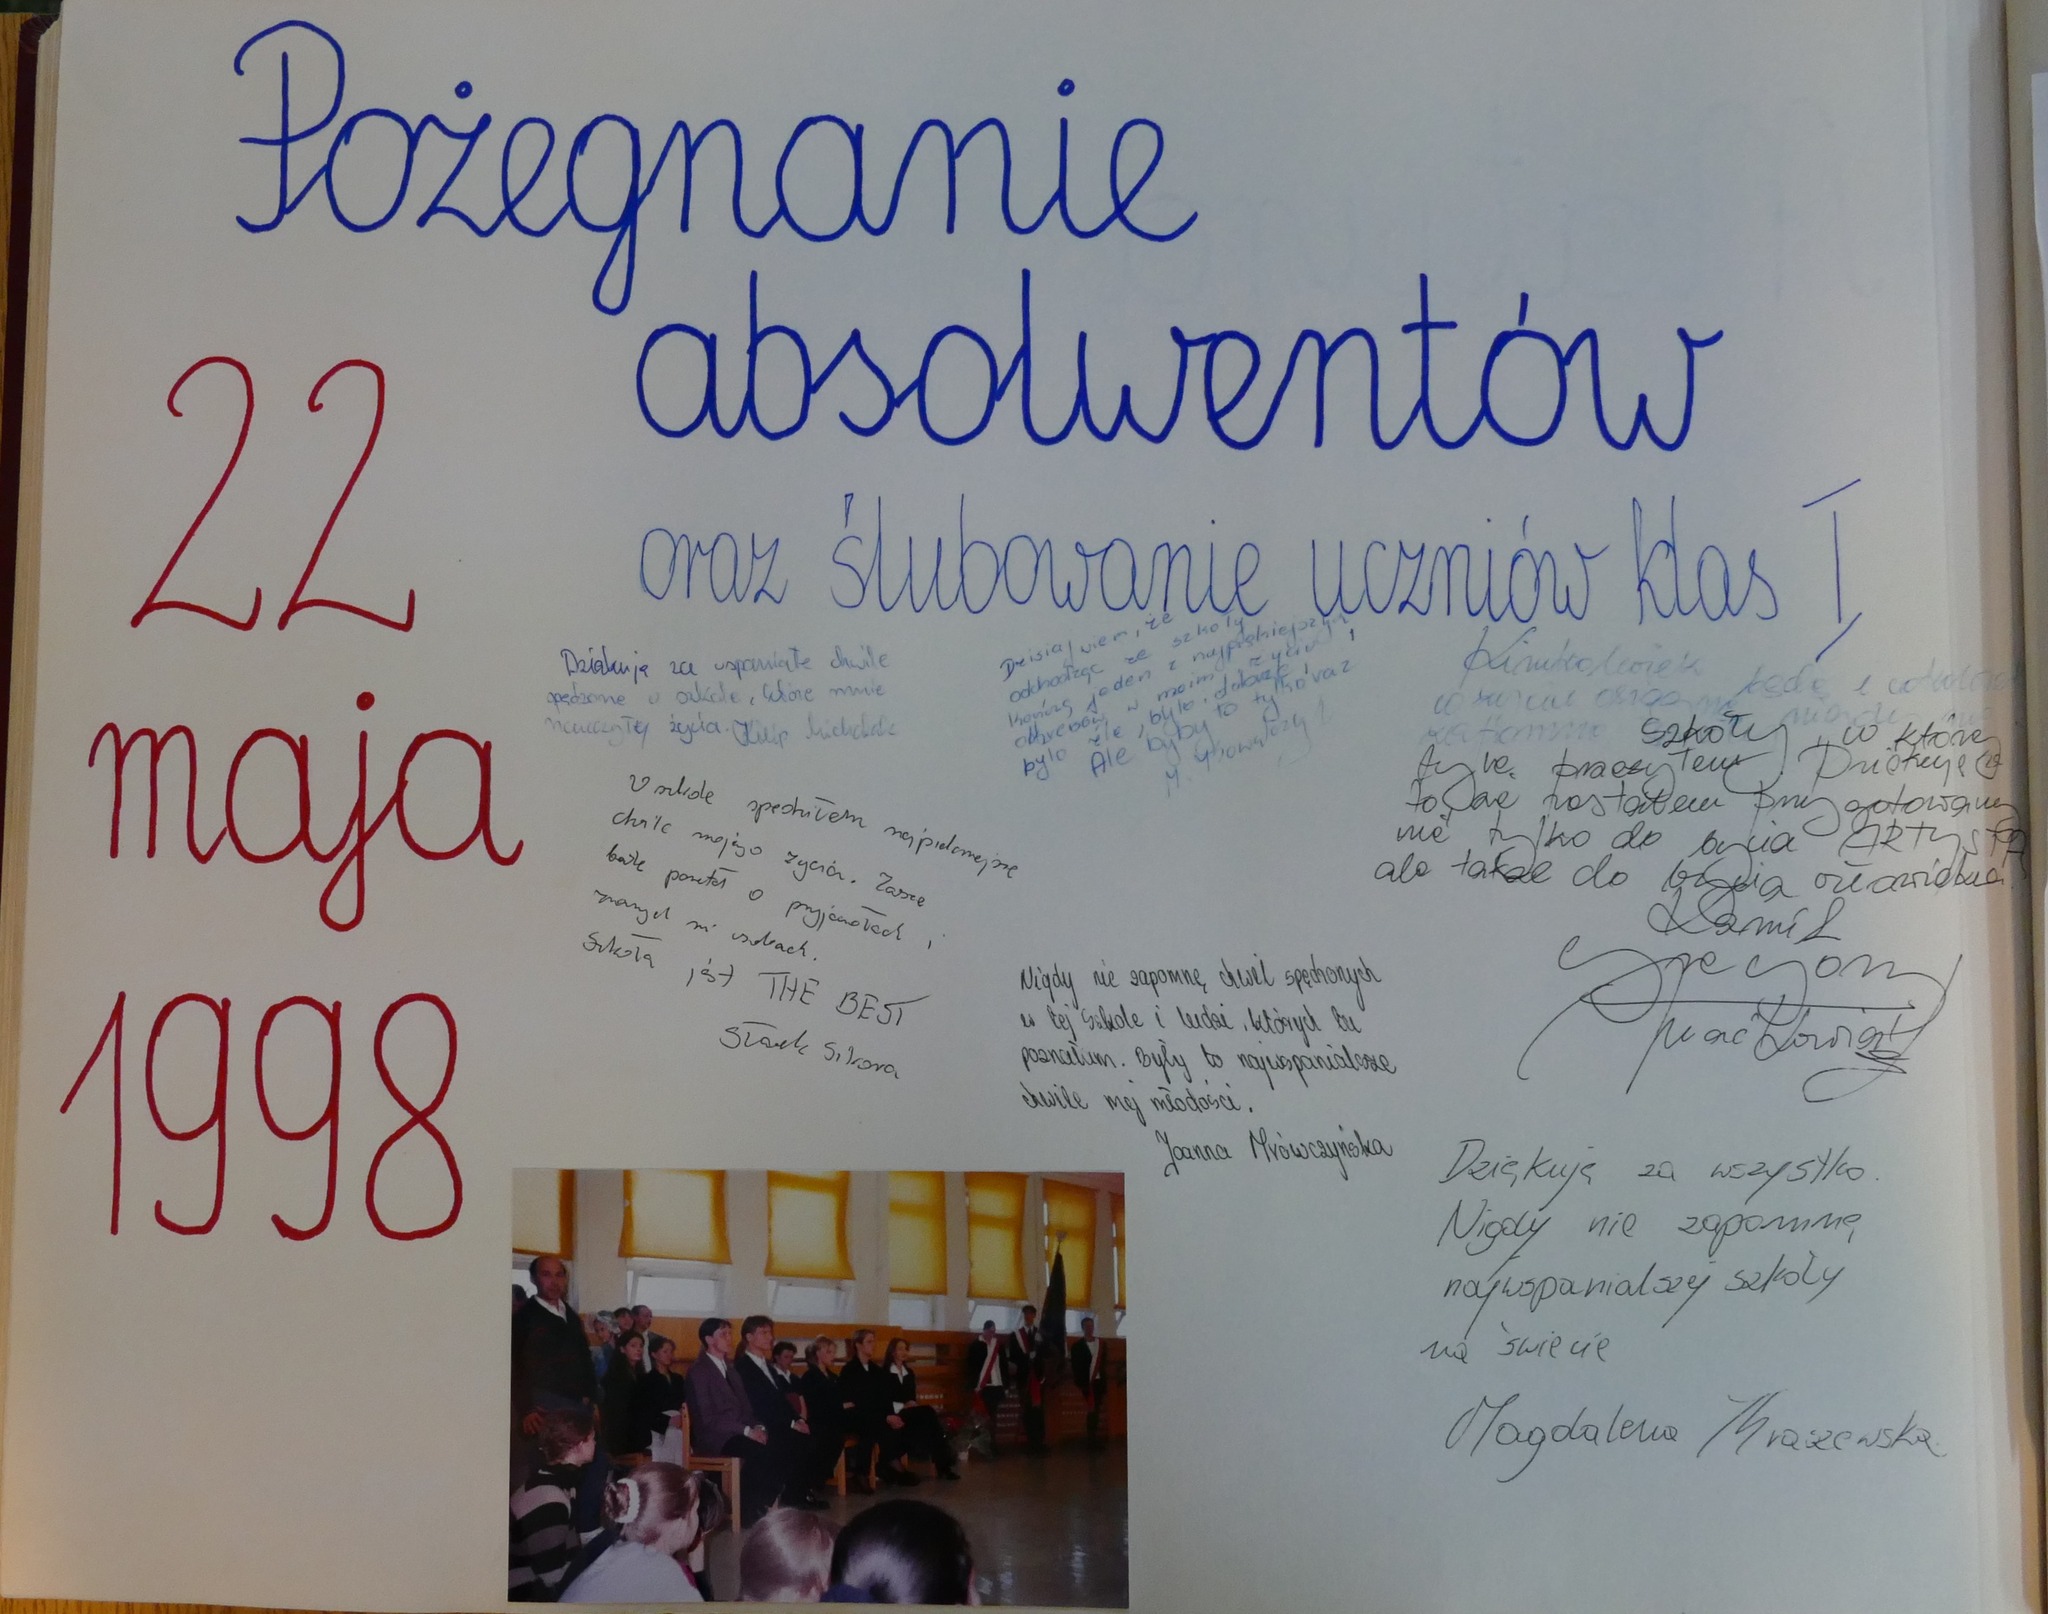 Pożegnanie
absolwentów
oraz ślubowanie uczniów klas I
22
maja
1998
Dziękuję za wspaniałe chwile
spędzone w szkole, które mnie
nauczyły życia.
Dzisiaj wiem, że
odchodząc ze szkoły
kończę jeden z najpiękniejszych
okresów w moim życiu!
było źle, było dobrze!
Ale było to tylko raz
W szkole spędziłem najpiękniejsze
chwile mojego życia. Zawsze
będę pamiętał o przyjaciołach i
znanych mi osobach.
Szkoła jest THE BEST
Sikora
Kimkolwiek będę i cokolwiek
w życiu osiągnę nigdy nie
szkoły, w której
tyle przeżyłem. Dziękuję
to że zostałem przygotowany
nie tylko do bycia Artystą
ale także do bycia człowiekiem
Kamil
Nigdy nie zapomnę chwil spędzonych
w tej szkole i ludzi, których tu
poznałam. Były to najwspanialsze
chwile mej młodości.
Joanna Mrówczyńska
Dziękuję za wszystko.
Nigdy nie zapomnę
najwspanialszej szkoły
na świecie
Magdalena Mraszewska